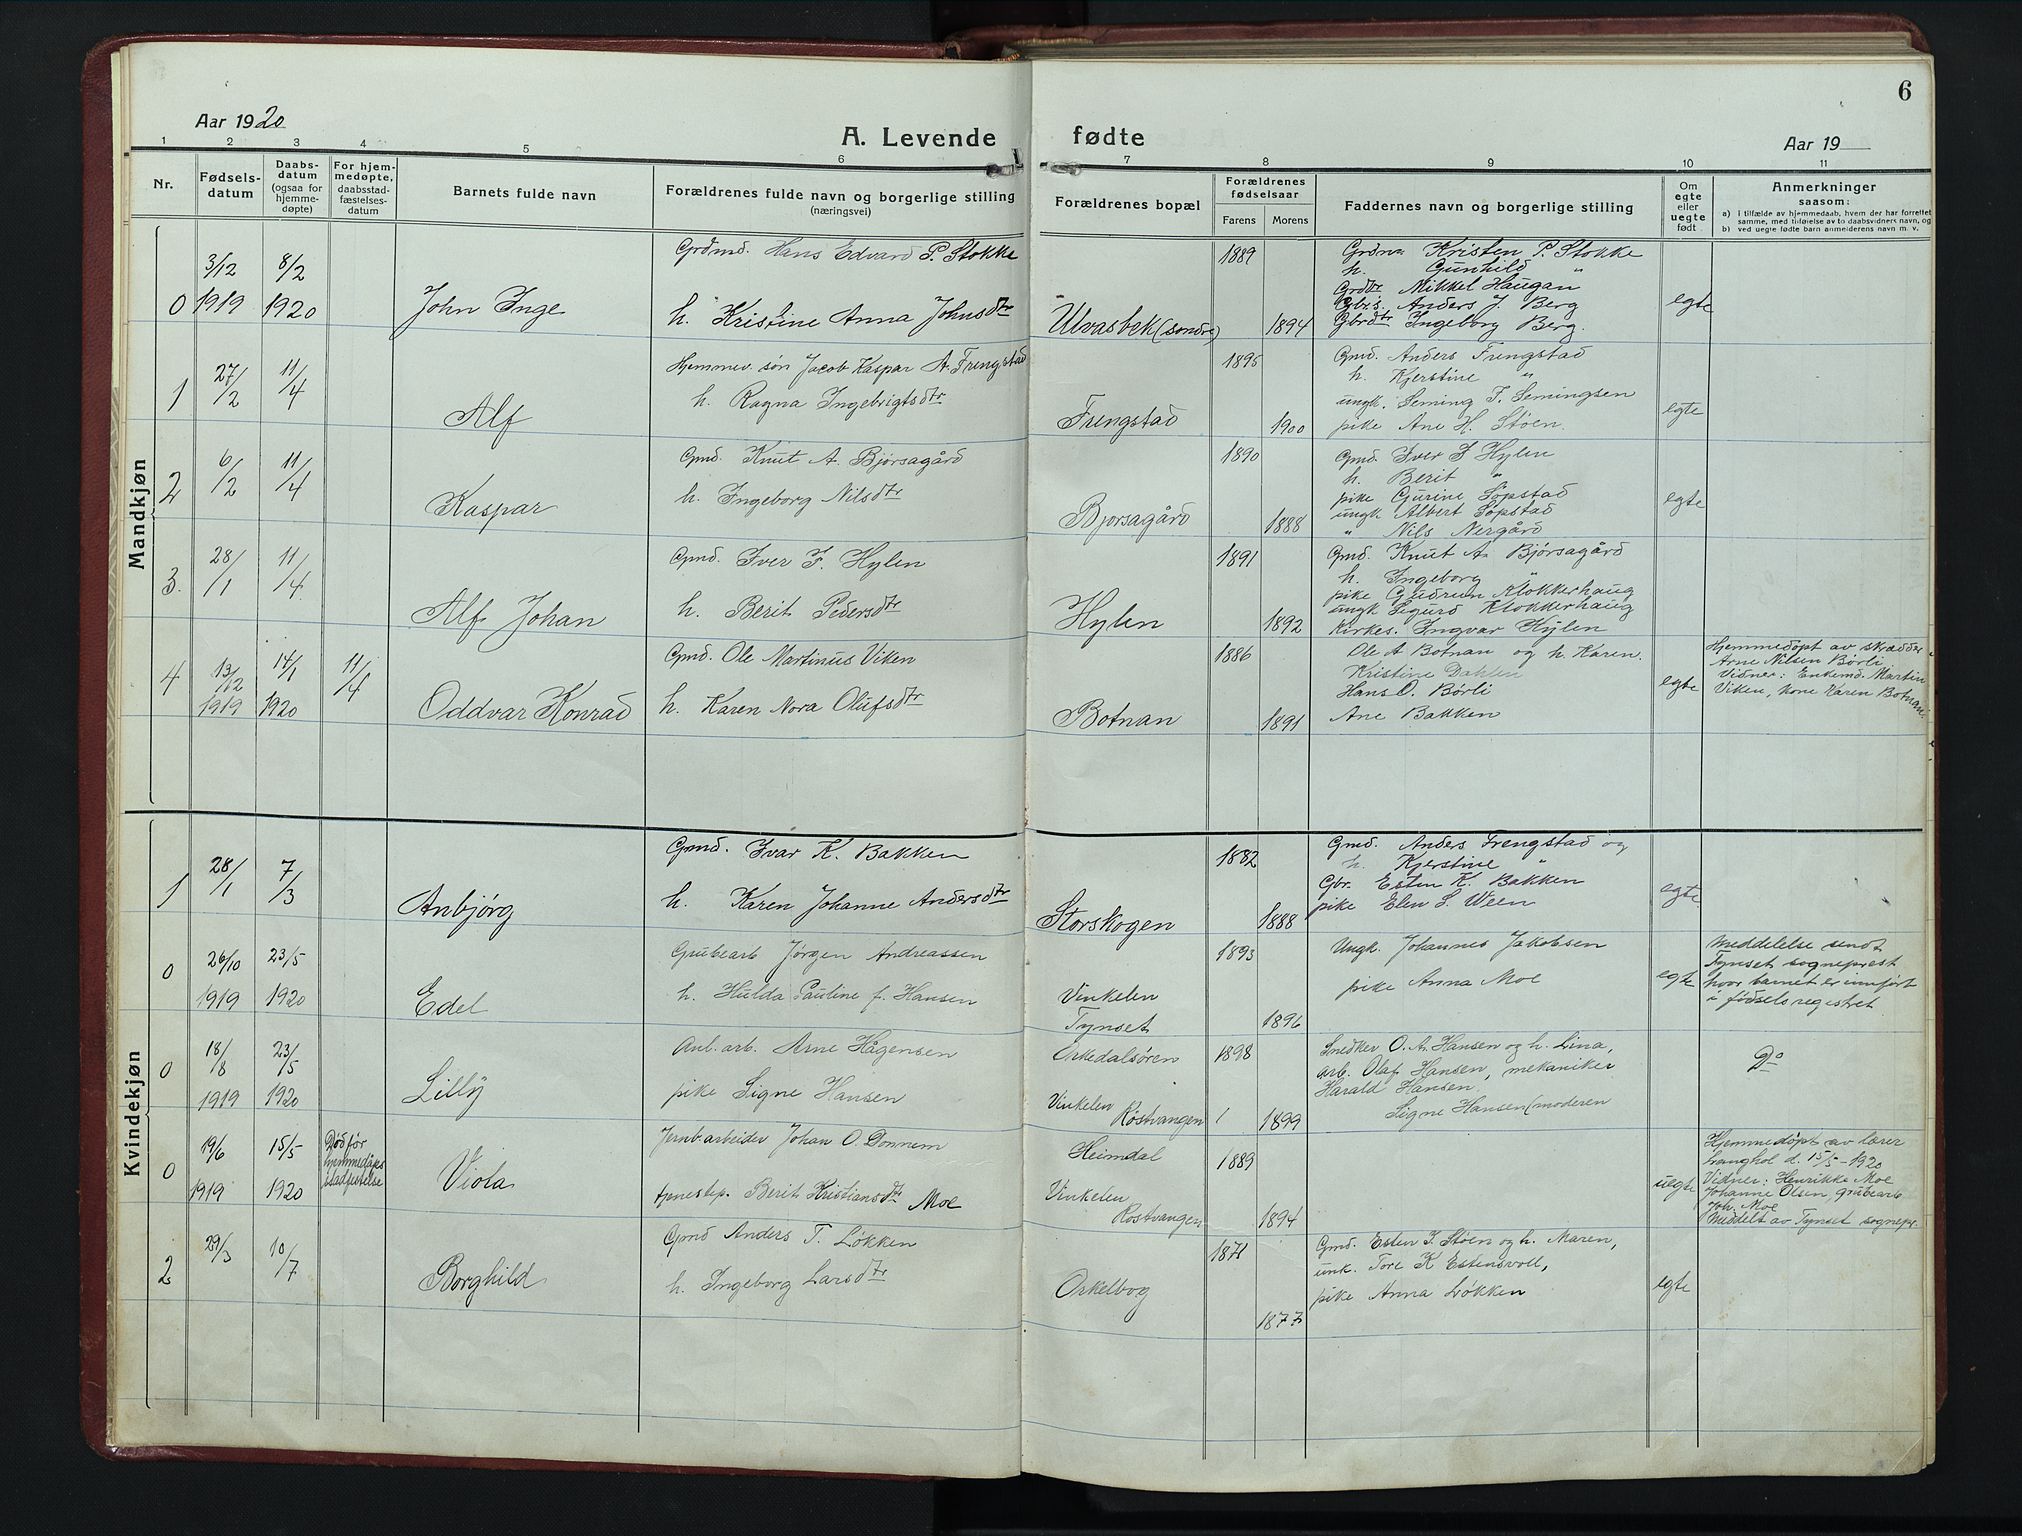 6
Aar 1920
A. Levende fødte
Aar 19
1 2 3 4 5 6 7 8 9 10 11
Nr.
Fødsels-
datum
Daabs-
datum
(ogsaa for
hjemme-
døpte)
For hjem-
medøpte,
daabsstad-
fæstelses-
datum
Barnets fulde navn
Forældrenes fulde navn og borgerlige stilling
(næringsvei)
Forældrenes bopæl
Forældrenes
fødselsaar
Farens Morens
Faddernes navn og borgerlige stilling
Om
egte
eller
uegte
født
Anmerkninger
saasom:
a) i tilfælde av hjemmedaab, hvem der har forrettet
samme, med tilføielse av to daabsvidners navn, og
b) ved uegte fødte barn anmelderens navn m. v.
Mandkjøn
0 3/12 1919 8/2 1920
John Inge
Grdmd. Hans Edvard P. Stokke
h. Kristine Anna Johnsdtr
Ulvasbek (søndre)
1889 1894
Kristen P. Stokke
h. Gunhild "
Grdtr Mikkel Haugan
Gbrs. Anders J. Berg
Gbrdtr Ingeborg Berg.
egte
1 27/2 11/4
Alf
Hjemmev. søn Jacob Kaspar A. Frengstad
h. Ragna Ingebrigtsdtr
Frengstad
1895 1900
Gmd. Anders Frengstad
h. Kjerstine "
ungk. Seming T. Semingsen
pike Ane H. Støen.
egte
2 6/2 11/4
Kaspar
Gmd. Knut A. Bjørsagård
h. Ingeborg Nilsdtr
Bjørsagård
1890 1888
Gmd. Iver F Hylen
h. Berit "
pike Gurine Søpstad
ungk Albert Søpstad
" Nils Nergård
egte
3. 28/1 11/4
Alf Johan
Gmd. Iver F. Hylen
h. Berit Pedersdtr
Hylen
1891 1892
Gmd. Knut A. Bjørsagård
h. Ingeborg "
pike Gudrun Klokkerhaug
ungk Sigurd Klokkerhaug
Kirkes. Ingvar Hylen
4 13/12 1919 14/1 1920 11/4
Oddvar Konrad
Gmd. Ole Martinus Viken
h. Karen Nora Olufsdtr
Botnan
1886 1891
Ole A Botnan og h. Karen.
Kristine Dahlen
Hans O. Børli
Ane Bakken
egte
Hjemmedøpt av skrædder
Arne Nilsen Børli
Vidner: Enkemd. Martin
Viken, kone Karen Botnan.
Kvindekjøn
1 28/1 7/3
Anbjørg
Gmd. Ivar K. Bakken
h. Karen Johanne Andersdtr
Storskogen
1882 1888
Gmd. Anders Frengstad og
h. Kjerstine "
Gbr. Esten K. Bakken
pike Elen S. Ween
egte
0 26/10 1919 23/5 1920
Edel
Grubearb Jørgen Andreassen
h. Hulda Pauline f. Hansen
Vinkelen
Tynset
1893 1896
Ungk. Johannes Jakobsen
pike Anna Moe
egte
Meddelelse sendt
Tynset sogneprest
hvor barnet er innført
i fødselsregistret
0 18/8 1919 23/5 1920
Lilly
Anl. arb. Arne Hågensen
pike Signe Hansen
Orkedalsøren
Vinkelen
Røstvangen
1898 1899
Snedker O. A. Hansen og h. Lina,
arb. Olaf Hansen, mekaniker
Harald Hansen.
Signe Hansen (moderen
Do
0 19/6 1919 15/5 1920
Død før
hjemmedåps
stadfestelse
Viola
Jernb. arbeider Johan O. Donnem
tjenestep. Berit Kristiansdtr Moe
Heimdal
Vinkelen
Røstvangen
1889 1894
uegte
Hjemmedøpt av lærer
d. 15/5-1920
Vidner: Henrikke Moe
Johanne Olsen, grubearb
Joh. Moe
Meddelt av Tynset sognepr.
2 29/3 10/7
Borghild
Gmd Anders T. Løkken
h. Ingeborg Larsdtr
Orkelbog
1871 1877
Gmd. Esten I. Støen og h. Maren,
unk. Tore K Estensvoll,
pike Anna Løkken
egte